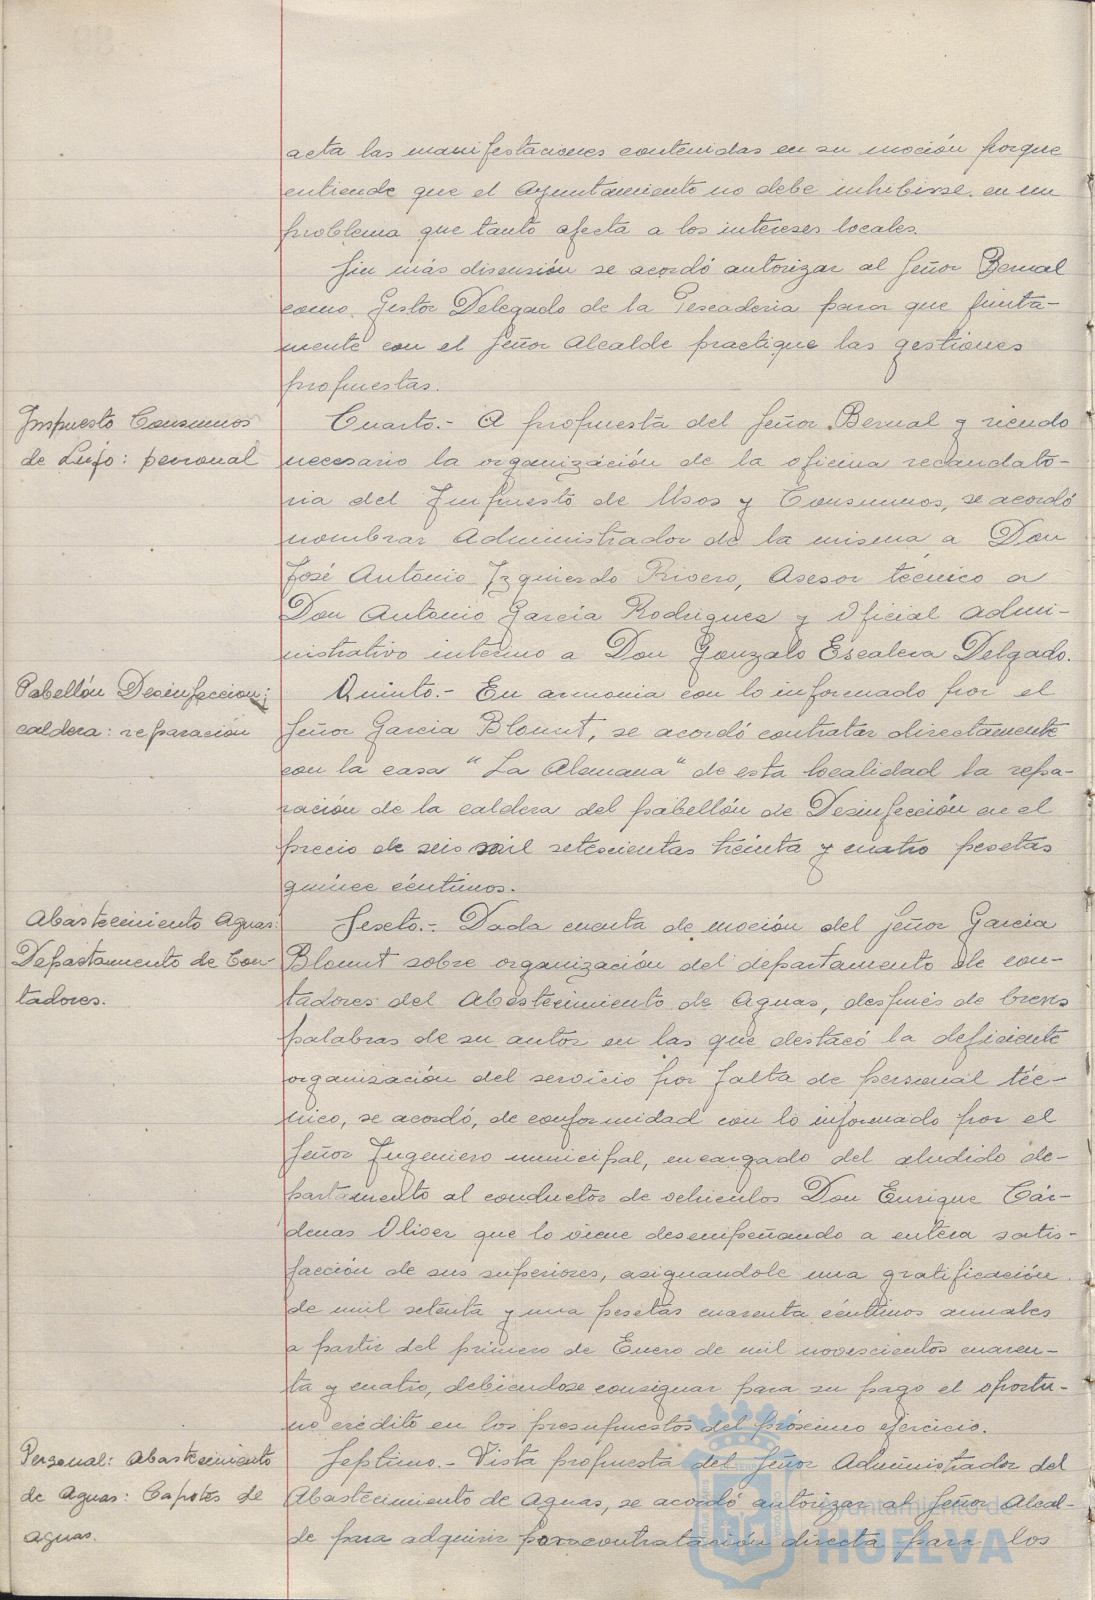 acta las manifestaciones contenidas en su moción porque
entiende que el Ayuntamiento no debe inhibirse en un
problema que tanto afecta a los intereses locales.
Sin más discusión se acordó autorizar al Señor Bernal
como Gestor Delegado de la Pescaderia para que junta-
mente con el Señor Alcalde practique las gestiones
propuestas.
Impuesto Consumos
de Lujo: personal
Cuarto.- A propuesta del Señor Bernal y siendo
necesario la organización de la oficina recaudato-
ria del Impuesto de Usos y Consumos, se acordó
nombrar Administrador de la misma a Don
José Antonio Izquierdo Rivero, Asesor técnico a
Don Antonio García Rodriguez y Oficial admi-
nistrativo interino a Don Gonzalo Escalera Delgado.
Pabellón Desinfeccion;
caldera: reparación
Quinto.- En armonia con lo informado por el
Señor Garcia Blount, se acordó contratar directamente
con la casa "La Alemana" de esta localidad la repa-
ración de la caldera del pabellón de Desinfección en el
precio de seis mil setescientas treinta y cuatro pesetas
quince céntimos.
Abastecimiento Aguas:
Departamento de Con-
tadores.
Sesto.- Dada cuenta de moción del Señor Garcia
Blount sobre organización del departamento de con-
tadores del Abastecimiento de Aguas, después de breves
palabras de su autor en las que destacó la deficiente
organización del servicio por falta de personal téc-
nico, se acordó, de conformidad con lo informado por el
Señor Ingeniero municipal, encargado del aludido de-
partamento al conductor de vehiculos Don Enrique Cár-
denas Oliver que lo viene desempeñando a entera satis-
facción de sus superiores, asignandole una gratificación
de mil setenta y una pesetas cuarenta céntimos anuales
a partir del primero de Enero de mil novescientos cuaren-
ta y cuatro, debiendose consignar para su pago el oportu-
no crédito en los presupuestos del próximo ejercicio.
Personal: Abastecimiento
de Aguas: Capotes de
aguas.
Septimo.- Vista propuesta del Señor Administrador del
Abastecimiento de Aguas, se acordó autorizar al Señor Alcal-
de para adquirir por contratación directa para los
Ayuntamiento de
HUELVA